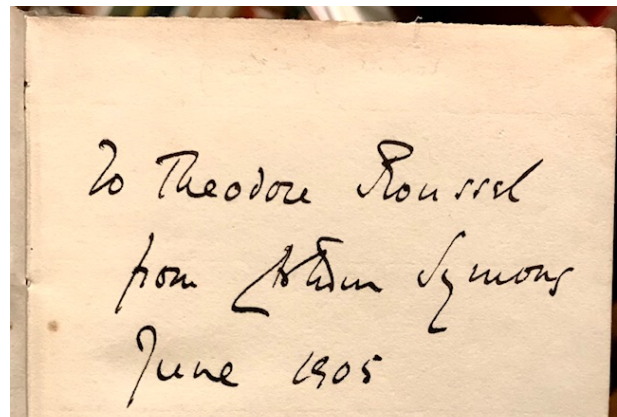 To Theodore Roussel
from Arthur Symons
June 1905